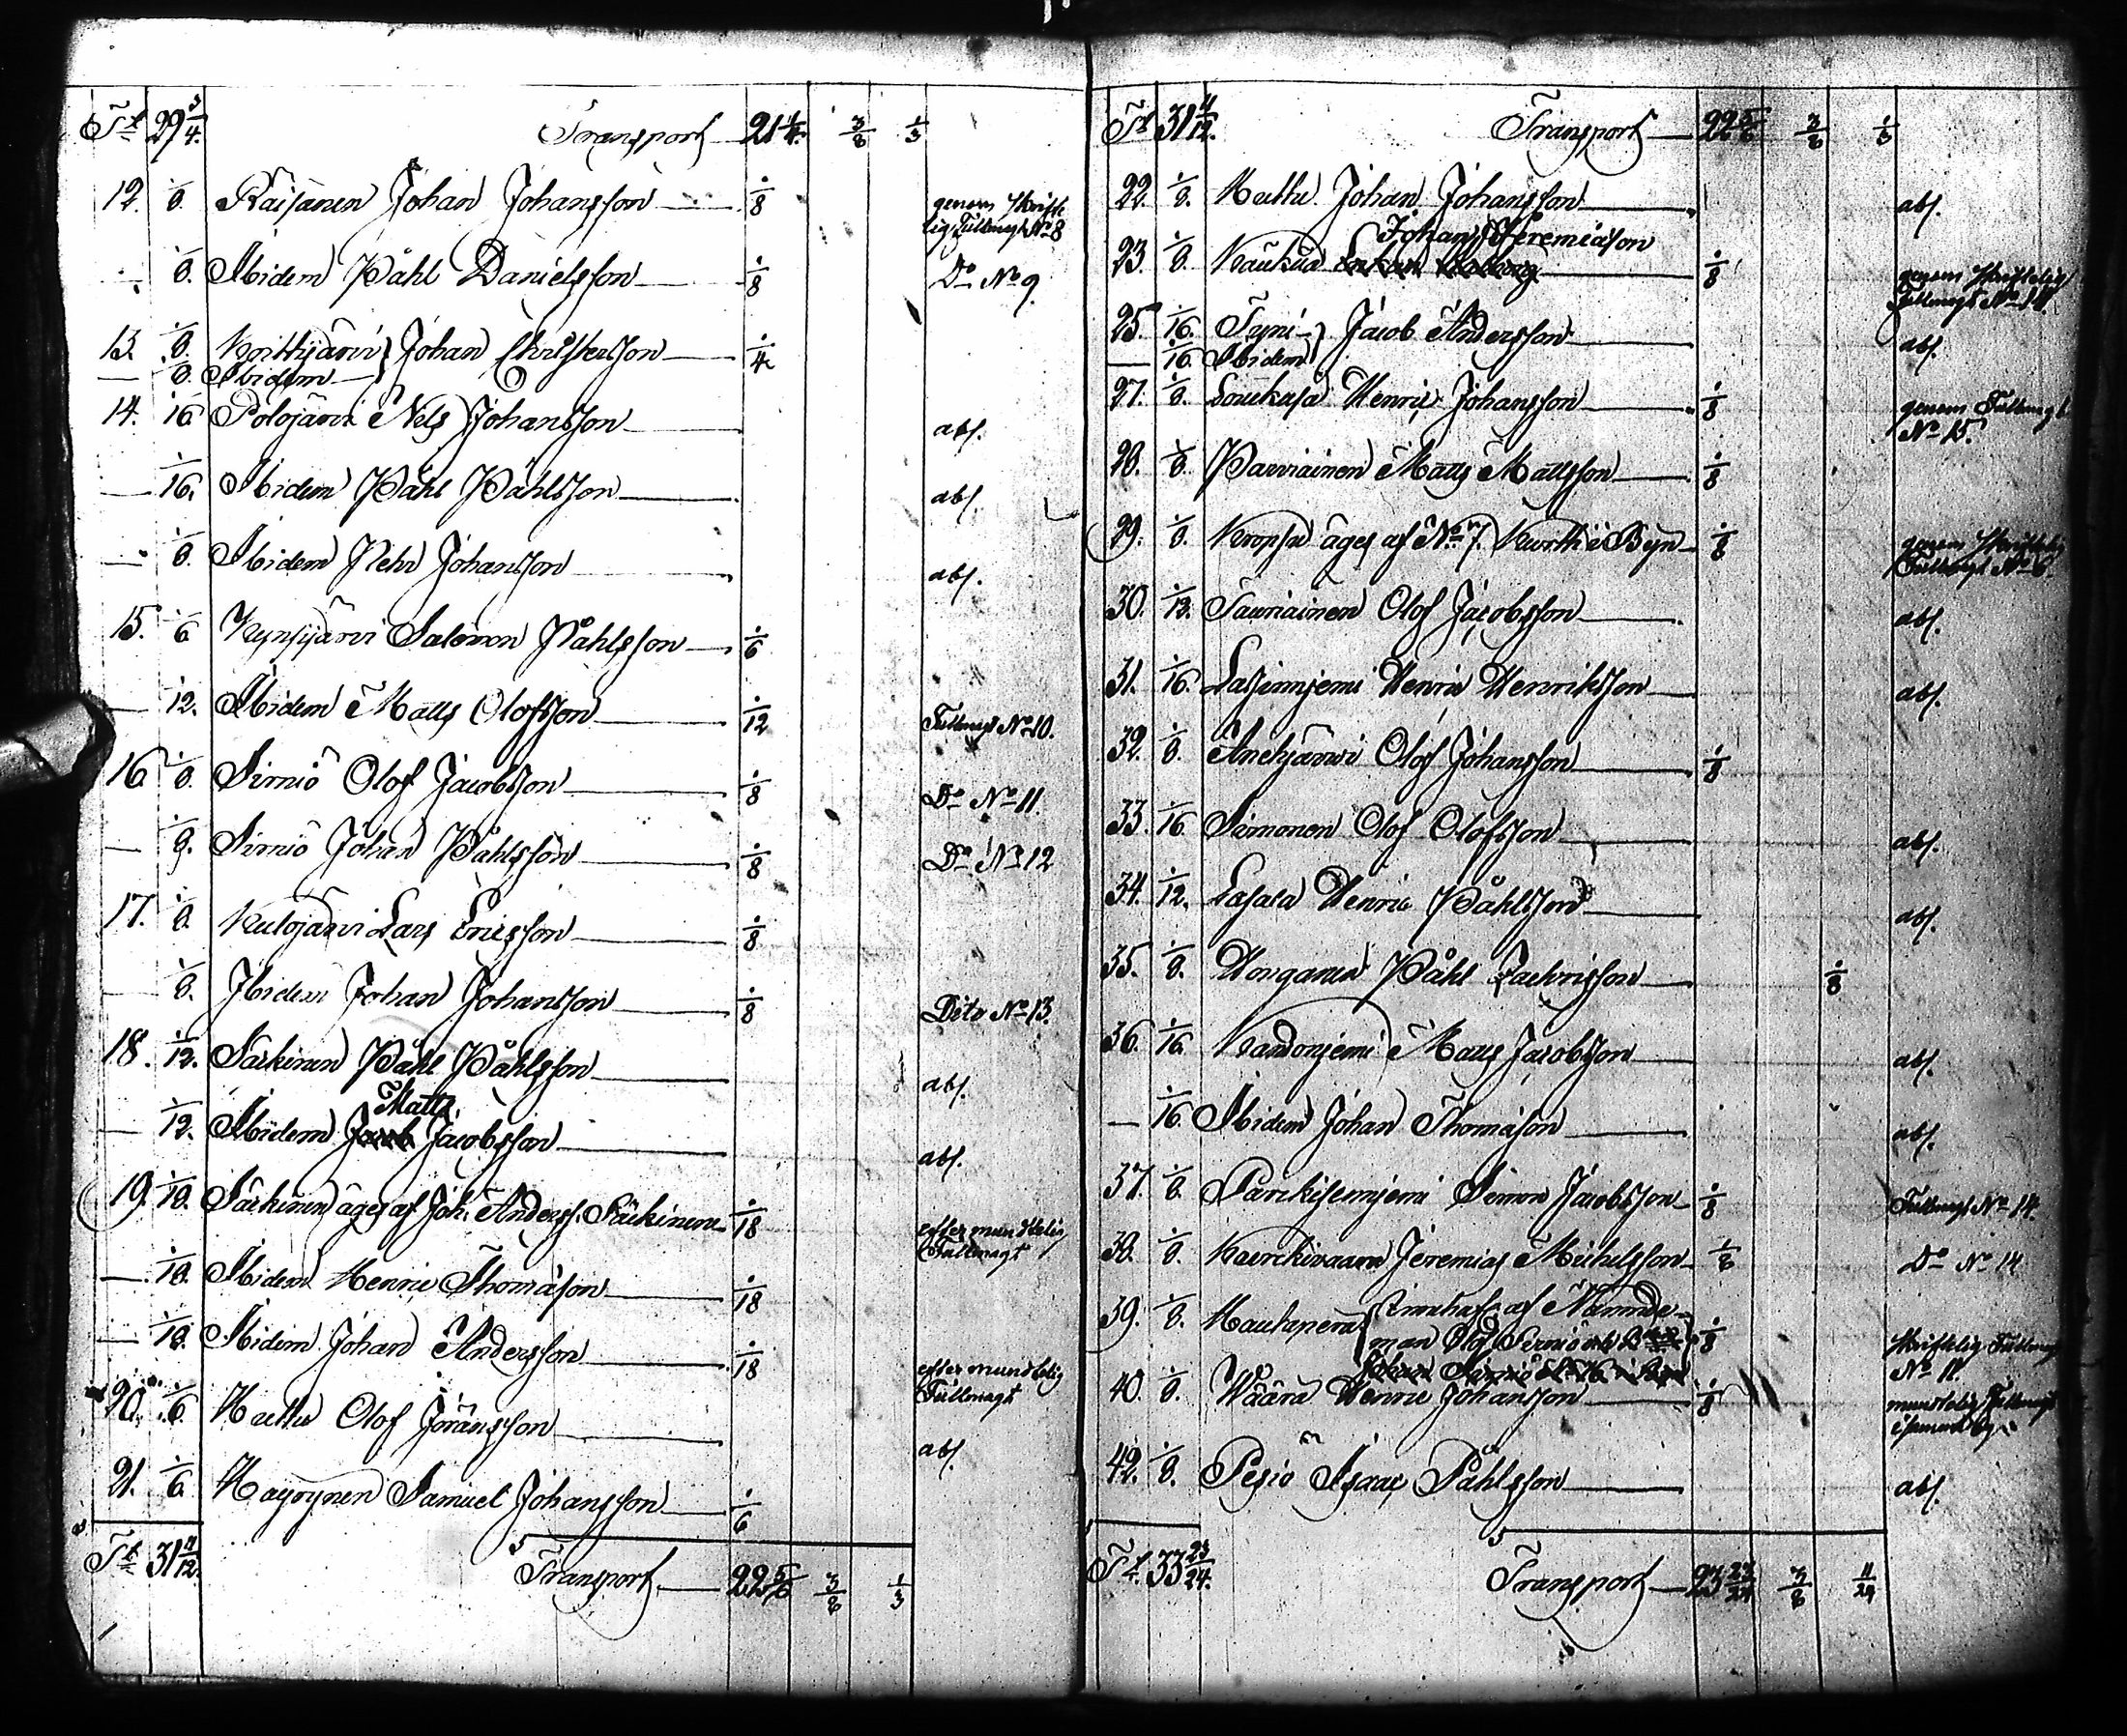 St 29 3/4. Transport 21 1/4. 3/8 1/3
12. 1/8. Räisänen Johan Johansson 1/8 genom skrift
lig Fullmagt No 8
1/8. Ibidem Påhl Danielsson 1/8 Do No 9.
13. 1/8. Johan Christersson 1/4
— 1/8. Ibidem
14. 1/16 Polojärvi Nils Johansson abs.
— 1/16. Ibidem Påhl Påhlsson abs.
— 1/8 Ibidem Pehr Johansson abs.
15. 1/6 Kynsijärvi Salomon Påhlsson 1/6
— 1/12. Ibidem Matts Olofsson 1/12 Fullmagt No 10.
16 1/8. Sirniö Olof Jacobsson 1/8 Do No 11.
— 1/8. Sirniö Johan Påhlsson 1/8 Do No 12
17. 1/8. Kulojärvi Lars Ericsson 1/8
— 1/8. Ibidem Johan Johansson 1/8 Dito No 13.
18. 1/12. Särkinen Påhl Påhlsson abs.
Matts
— 1/12. Ibidem Jacob Jacobsson abs.
19. 1/18. Särkinen äges af Joh. Anderss. Särkinen 1/18 efter muntelig
Fullmagt
— 1/18. Ibidem Henric Thomasson 1/18
— 1/18. Ibidem Johan Andersson 1/18 efter muntelig
Fullmagt
20. 1/6. Olof Jöransson abs.
21. 1/6. Häyrynen Samuel Johansson 1/6
St 31 4/12. Transport 22 5/6 3/8 1/3
St 31 4/12. Transport 22 5/6 3/8 1/3
22. 1/8. Johan Johansson abs.
Johan Jeremiasson
23. 1/8. 1/8 genom skriftelig
Fullmagt No 14.
25. 1/16. Tyni Jacob Andersson abs.
— 1/16. Ibidem
27. 1/8. Loukusa Henric Johansson 1/8 genom Fullmagt
No 15.
28. 1/8. Parviainen Matts Mattsson 1/8
29. 1/8. Kropsu äges af No 7. Kurtti i Byn 1/8 genom skriftelig
Fullmagt No 6.
30. 1/12. Tauriainen Olof Jacobsson abs.
31. 1/16. Henric Henriksson abs.
32. 1/8. Olof Johansson 1/8
33. 1/16. Simonen Olof Olofsson abs.
34. 1/12. Lasala Henric Påhlsson abs.
35. 1/8. Påhl Zachrisson 1/8
36. 1/16. Matts Jacobsson abs.
— 1/16. Ibidem Johan Thomasson abs.
37. 1/8. Simon Jacobsson 1/8 Fullmagt No 14.
38. 1/8. Jeremias Michelsson 1/8 Do No 14
39. 1/8. Hautaperä innehafs af Nämnde-
man Olof Sirniö 1/8 skriftelig Fullmagt
No 11.
40. 1/8. Wäärä Henric Johansson 1/8 muntelig Fullmagt
42. 1/8. Pesiö Isaac Påhlsson abs.
St. 33 23/24. Transport 23 23/24 3/8 11/24